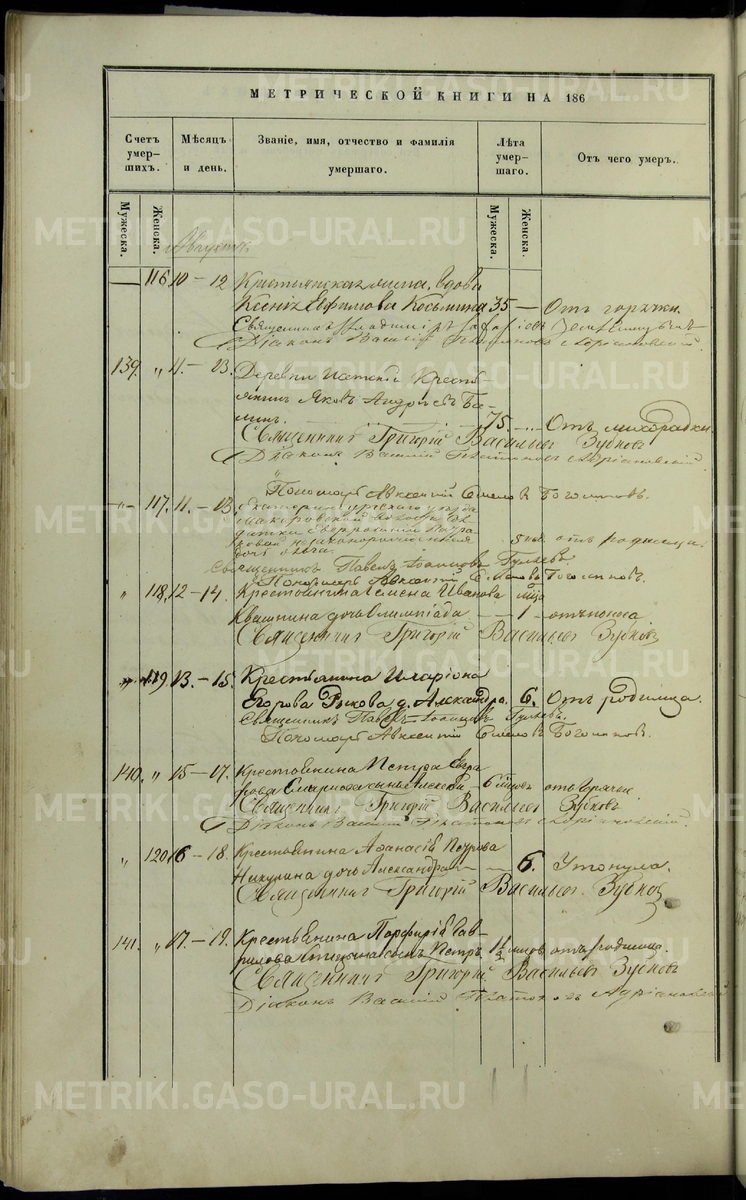 МЕТРИЧЕСКОЙ КНИГИ НА 186
Счетъ умер-шихъ.
Мѣсяцъ и день.
Званіе, имя, отчество и фамилія умершаго.
Лѣта умер-шаго.
Отъ чего умеръ.
Мужеска.
Женска.
Мужеска.
Женска.
Августъ
116 10 — 12 Крестьянская вдова
Ксенія Евфимова Косьмина 35 — Отъ горячки.
Священникъ
Діаконъ Василій Платоновъ Адріановскій.
139. " 11. — 13. Деревни Кресть-
янинъ Яковъ Андреевъ Ба-
75. Отъ лихорадки.
Священникъ Григорій Васильевъ Зубковъ
Діаконъ Василій Платоновъ Адріановскій
Пономарь Авксентій Семеновъ Богомоловъ.
117. 11. — 13. Екатеринбургскаго уѣзда
волости
дочь отъ родимца.
Священникъ Павелъ Іоанновъ Гуляевъ.
Пономарь Авксентій Семеновъ Богомоловъ.
" 118. 12 — 14. Крестьянина Семена Иванова
Квашнина дочь Олимпіада 1 отъ поноса
Священникъ Григорій Васильевъ Зубковъ
119. 13. — 15. Крестьянина Иларіона
Егорова Рыкова д. Александра. 6. Отъ родимца.
Священникъ Павелъ Іоанновъ Гуляевъ.
Пономарь Авксентій Семеновъ Богомоловъ.
140. " 15 — 17. Крестьянина Петра
сынъ Алексѣй 6
Священникъ Григорій Васильевъ Зубковъ
Діаконъ Василій Платоновъ Адріановскій.
" 120. 16 — 18. Крестьянина Афанасія Петрова
Никулина дочь Александра 6. Утонула.
Священникъ Григорій Васильевъ Зубковъ
141. " 17. — 19. Крестьянина Порфирія Гав-
рилова сынъ Петръ отъ родимца.
Священникъ Григорій Васильевъ Зубковъ
Діаконъ Василій Платоновъ Адріановскій
METRIKI.GASO-URAL.RU